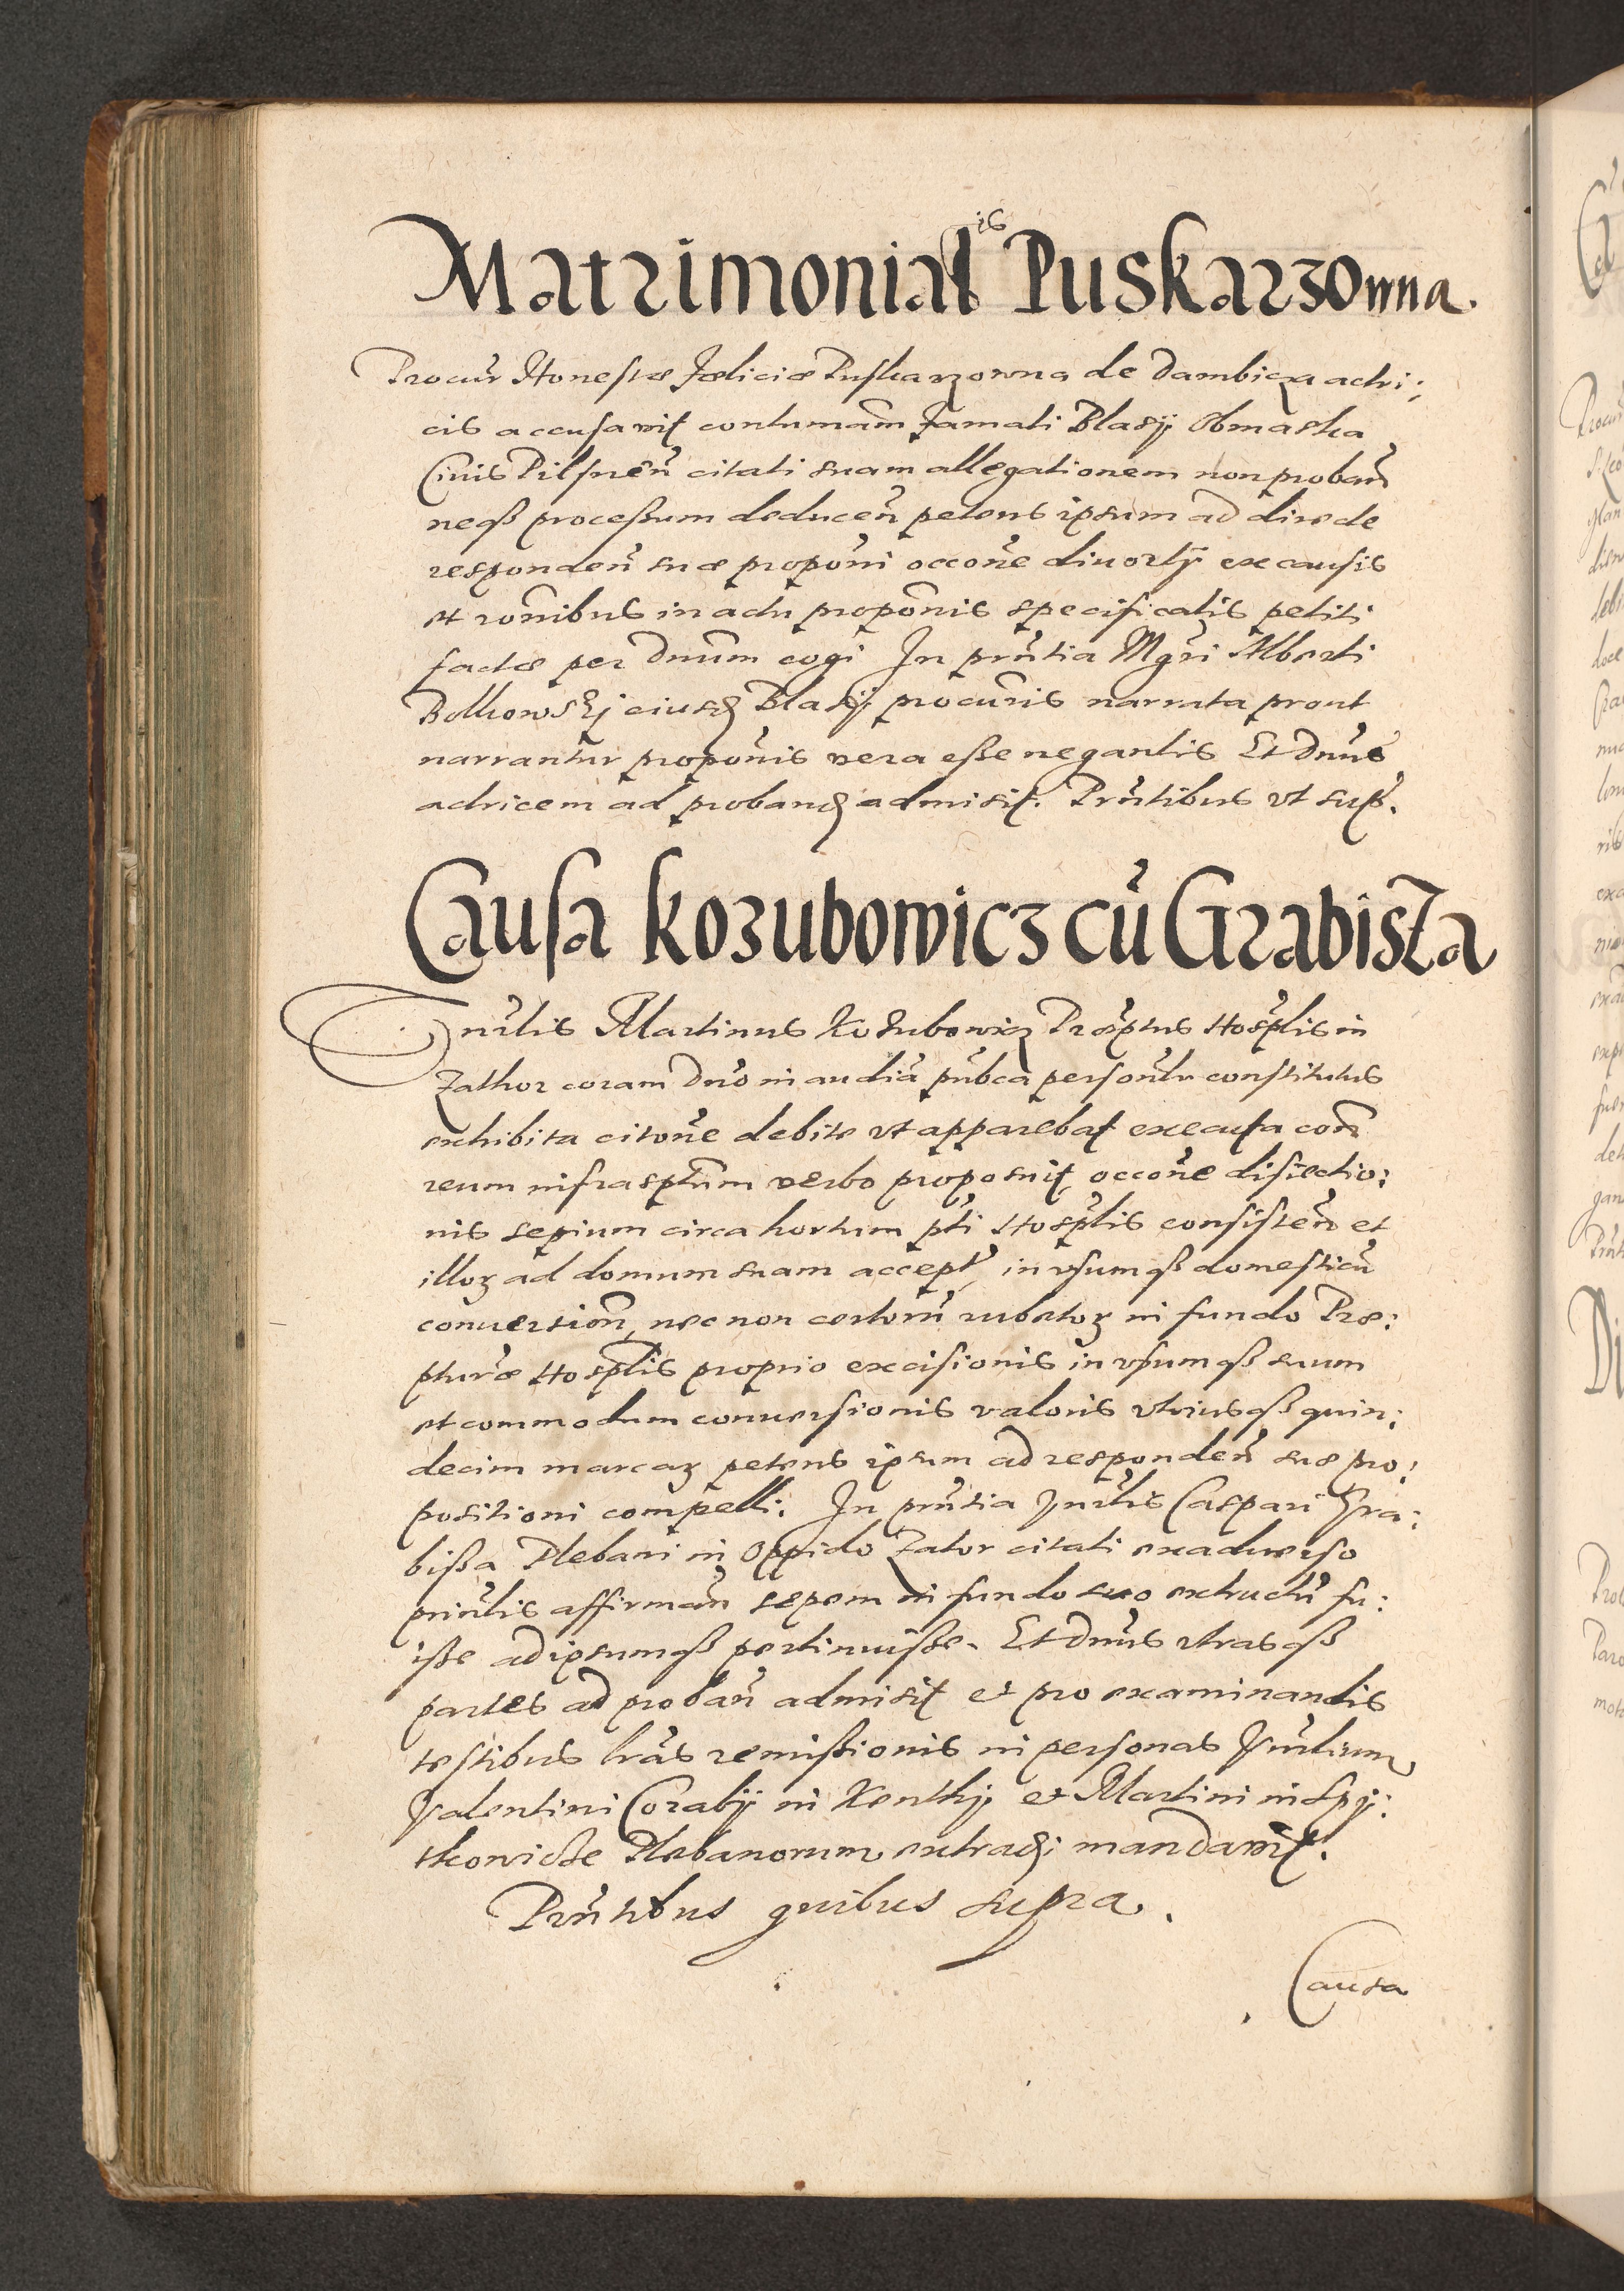 Matrimonialis Puskarzowna.
Procur Honestæ Fœliciæ Puskarzowna de Dambicza actri:
cis accusavit contumam Famati Blasij Obmaska
Civis Pilsnen citati suam allegationem non proban
neqß proceßum deducen petens ipsum ad directe
responden suæ proponi occone divortij ex causis
et ronibus in actu proponis specificatis petiti
factæ per Dnum cogi In pntia Mgri Alberti
Belkowskj eiusd Blasij procuris narrata prout
narrantur proponis vera eße negantis Et Dnus
actricem ad proband admisit. Pntibus vt sup.
Causa Kozubowicz cu Grabissa
Vnrlis Martinus Kozubowicz Præptus Hosplis in
Zathor coram Dno in audia pubca personlr constitutus
exhibita citone debite vt apparebat executa con
reum infrasptum verbo proposuit occone disiectio:
nis sepium circa hortum pti Hosplis consisten et
illorz ad domum suam accept in vsumqß domesticu
conversion, necnon certorum rubetorz in fundo Præ:
pturæ Hosplis proprio excisionis in vsumqß suum
et commodum conversionis valoris vtriusqß quin:
decim marcarz petens ipsum ad responden suæ pro:
positioni compelli. In pntia Vnrlis Caspari Gra:
bißa Plebani in Oppido Zator citati exadverso
principlis affirman sepem in fundo suo extructu fu:
iße ad ipsumqß pertinuiße. Et Dnus vtrasqß
partes ad proban admisit et pro examinandis
testibus lras remißionis in personas Vnrlium
Valentini Corabij in Kenthij et Martini in Spij:
tkowicze Plebanorum extradi mandavit.
Pntibus quibus supra.
Causa